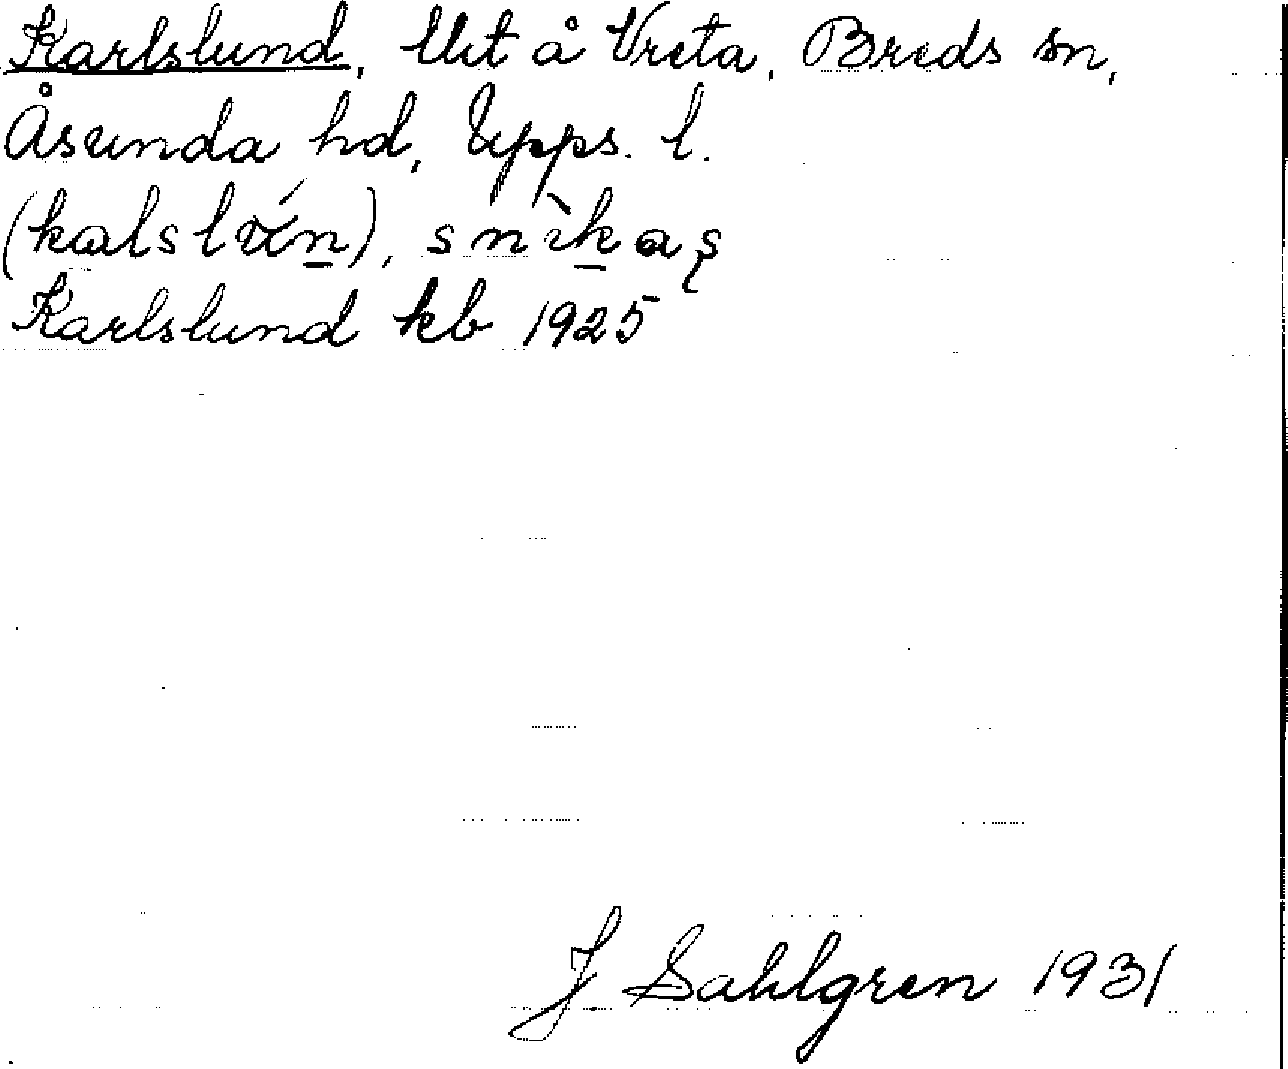 Karlslund, Ut å Vreta, Breds sn,
Åsunda hd, Upps. l.
Karlslund kb 1925
J Sahlgren 1931